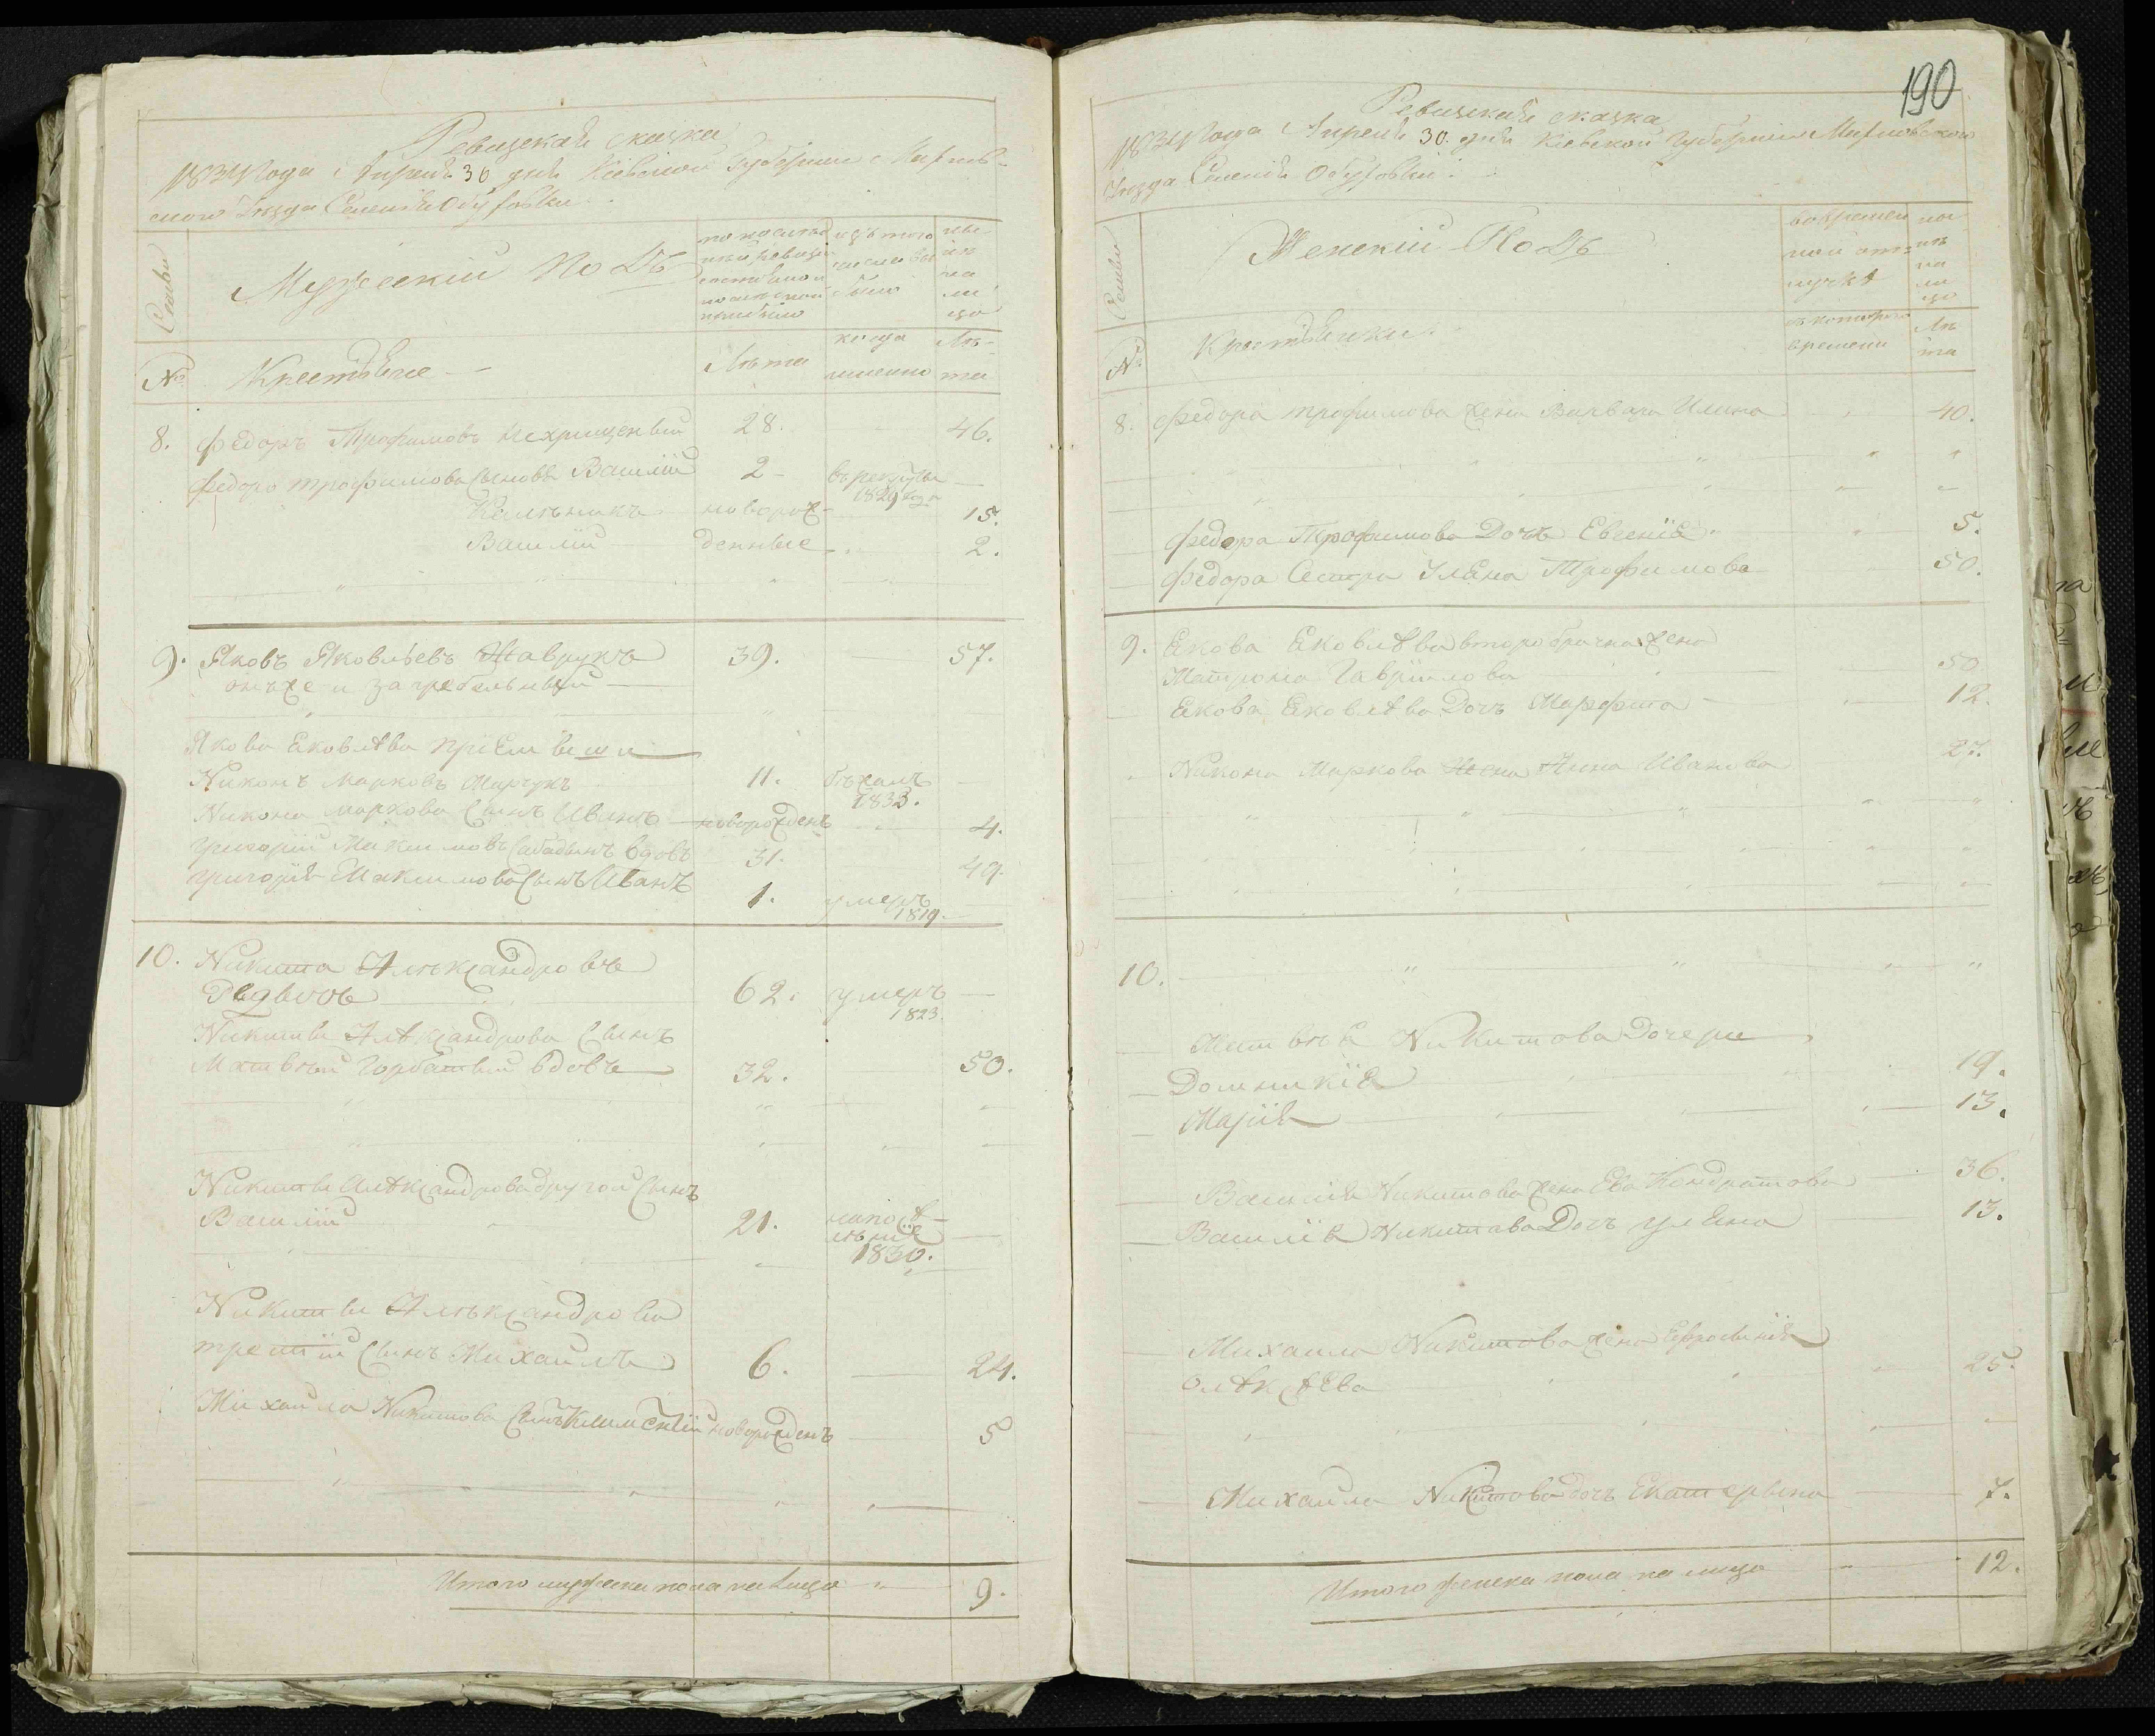 Ревизская сказка
1834 года Апреля 30 дня Киевской Губернии Липов-
ского Уезда Селения Обуховки
Семьи
Мужеский Полъ
по последней ревизии состояло и после оной прибыло
изъ того числа выбыло
ныне на лицо
№
Крестьяне
Лѣта
когда именно
Лѣта
8. Федоръ Трофимовъ Нехрищеный 28. 46.
Федора Трофимова Сыновья Василiй 2 въ рекруты 1829 года
новорож- 15.
Василiй денные 2.
9. Яковъ Яковлевъ 39. 57.
онъ же и загребельный
Якова Яковлѣва
Никонъ Марковъ Марчукъ 11. бѣжалъ 1833.
Никона Маркова Сынъ Иванъ новорожденъ 4.
Григорiй Максимовъ вдовъ 31. 49.
Григорiя Максимова Сынъ Иванъ 1. умеръ 1819.
10. Никита Алѣксандровъ
62. умеръ 1823.
Никиты Алѣксандрова Сынъ
Матвѣй Горбатый вдовъ 32. 50.
Никиты Алѣксандрова другой Сынъ
Василiй 21. 1830.
Никиты Алѣксандрова
третiй Сынъ Михаилъ 6. 24.
Михаила Никитова Сынъ новорожденъ 5
Итого мужеска пола на лицо 9.
190
Ревизская сказка
1834 года Апреля 30. дня Киевской Губернии
Уезда Селения Обуховки
Семьи
Женский Полъ
во временной отлучкѣ
ныне на лицо
№
Крестьянки
съ котораго времени
Лѣта
8. Федора Трофимова жена Варвара Илина 40.
Федора Трофимова Дочь Евгенiя 5.
Федора Сестра Уляна Трофимова 50.
9. Якова Яковлѣва второбрачна жена
Матрона Гаврiилова 50
Якова Яковлѣва Дочь Марфита 12.
Никона Маркова жена Анна Иванова 27.
10.
Матвѣя Никитова Дочери
Домникiя 19.
Марiя 13.
Василiя Никитова жена Ева Кондратова 36.
Василiя Никитова Дочь Уляна 13.
Михаила Никитова жена Ефросинiя
Олѣксѣева 25.
Михаила Никитова дочь Екатерына 7.
Итого женска пола на лицо 12.